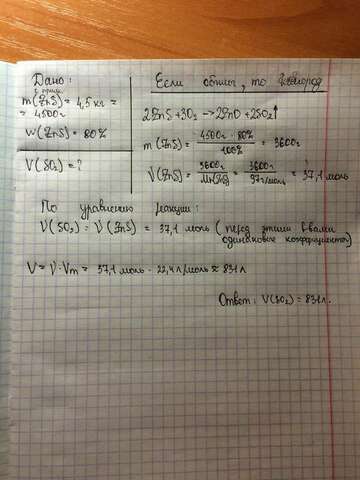 Дано:
с прим.
m(ZnS) = 4,5 кг =
= 4500г
W(ZnS) = 80%
V(SO₂) = ?
Если обжиг, то кислород
2ZnS + 3O₂ → 2ZnO + 2SO₂↑
m(ZnS) = 4500г · 80% / 100% = 3600г
ν(ZnS) = 3600г / Mr(ZnS) = 3600г / 97г/моль = 37,1 моль
По уравнению реакции:
ν(SO₂) = ν(ZnS) = 37,1 моль (перед этими в-вами
одинаковые коэффициенты)
V = ν · Vm = 37,1 моль · 22,4 л/моль ≈ 831л
Ответ: V(SO₂) = 831л.